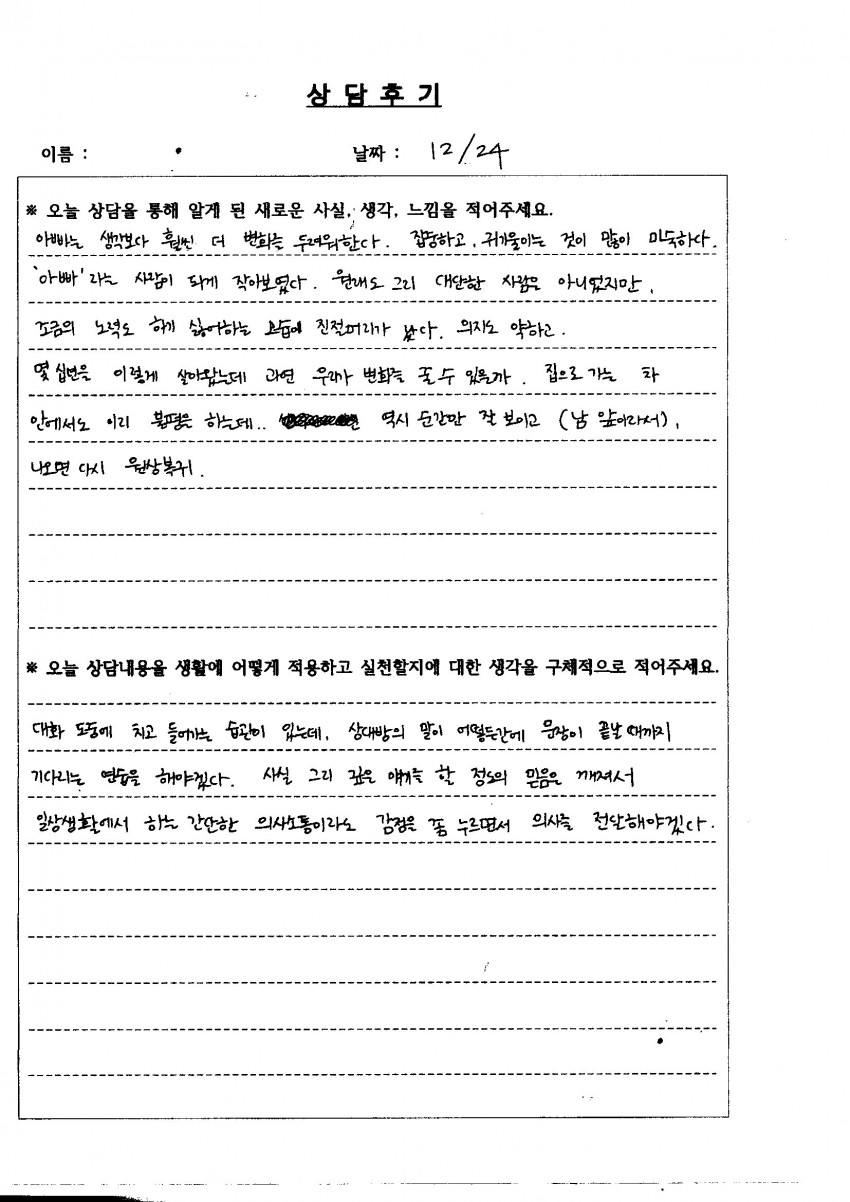 상 담 후 기
이름 :
날짜 : 12/24
※ 오늘 상담을 통해 알게 된 새로운 사실, 생각, 느낌을 적어주세요.
아빠는 생각보다 훨씬 더 변화를 두려워한다. 집중하고, 귀기울이는 것이 많이 미숙하다.
'아빠'라는 사람이 되게 작아보였다. 원래도 그리 대단한 사람은 아니었지만,
조금의 노력도 하기 싫어하는 모습에 진절머리가 났다. 의지도 약하고.
몇 십년을 이렇게 살아왔는데 과연 우리가 변화를 줄 수 있을까. 집으로 가는 차
안에서도 이리 불평을 하는데.. 역시 순간만 잘 보이고 (남 앞이라서),
나오면 다시 원상복귀.
※ 오늘 상담내용을 생활에 어떻게 적용하고 실천할지에 대한 생각을 구체적으로 적어주세요.
대화 도중에 치고 들어가는 습관이 있는데, 상대방의 말이 어떻든간에 문장이 끝날 때까지
기다리는 연습을 해야겠다. 사실 그리 깊은 얘기를 할 정도의 믿음은 깨져서
일상생활에서 하는 간단한 의사소통이라도 감정을 좀 누르면서 의사를 전달해야겠다.